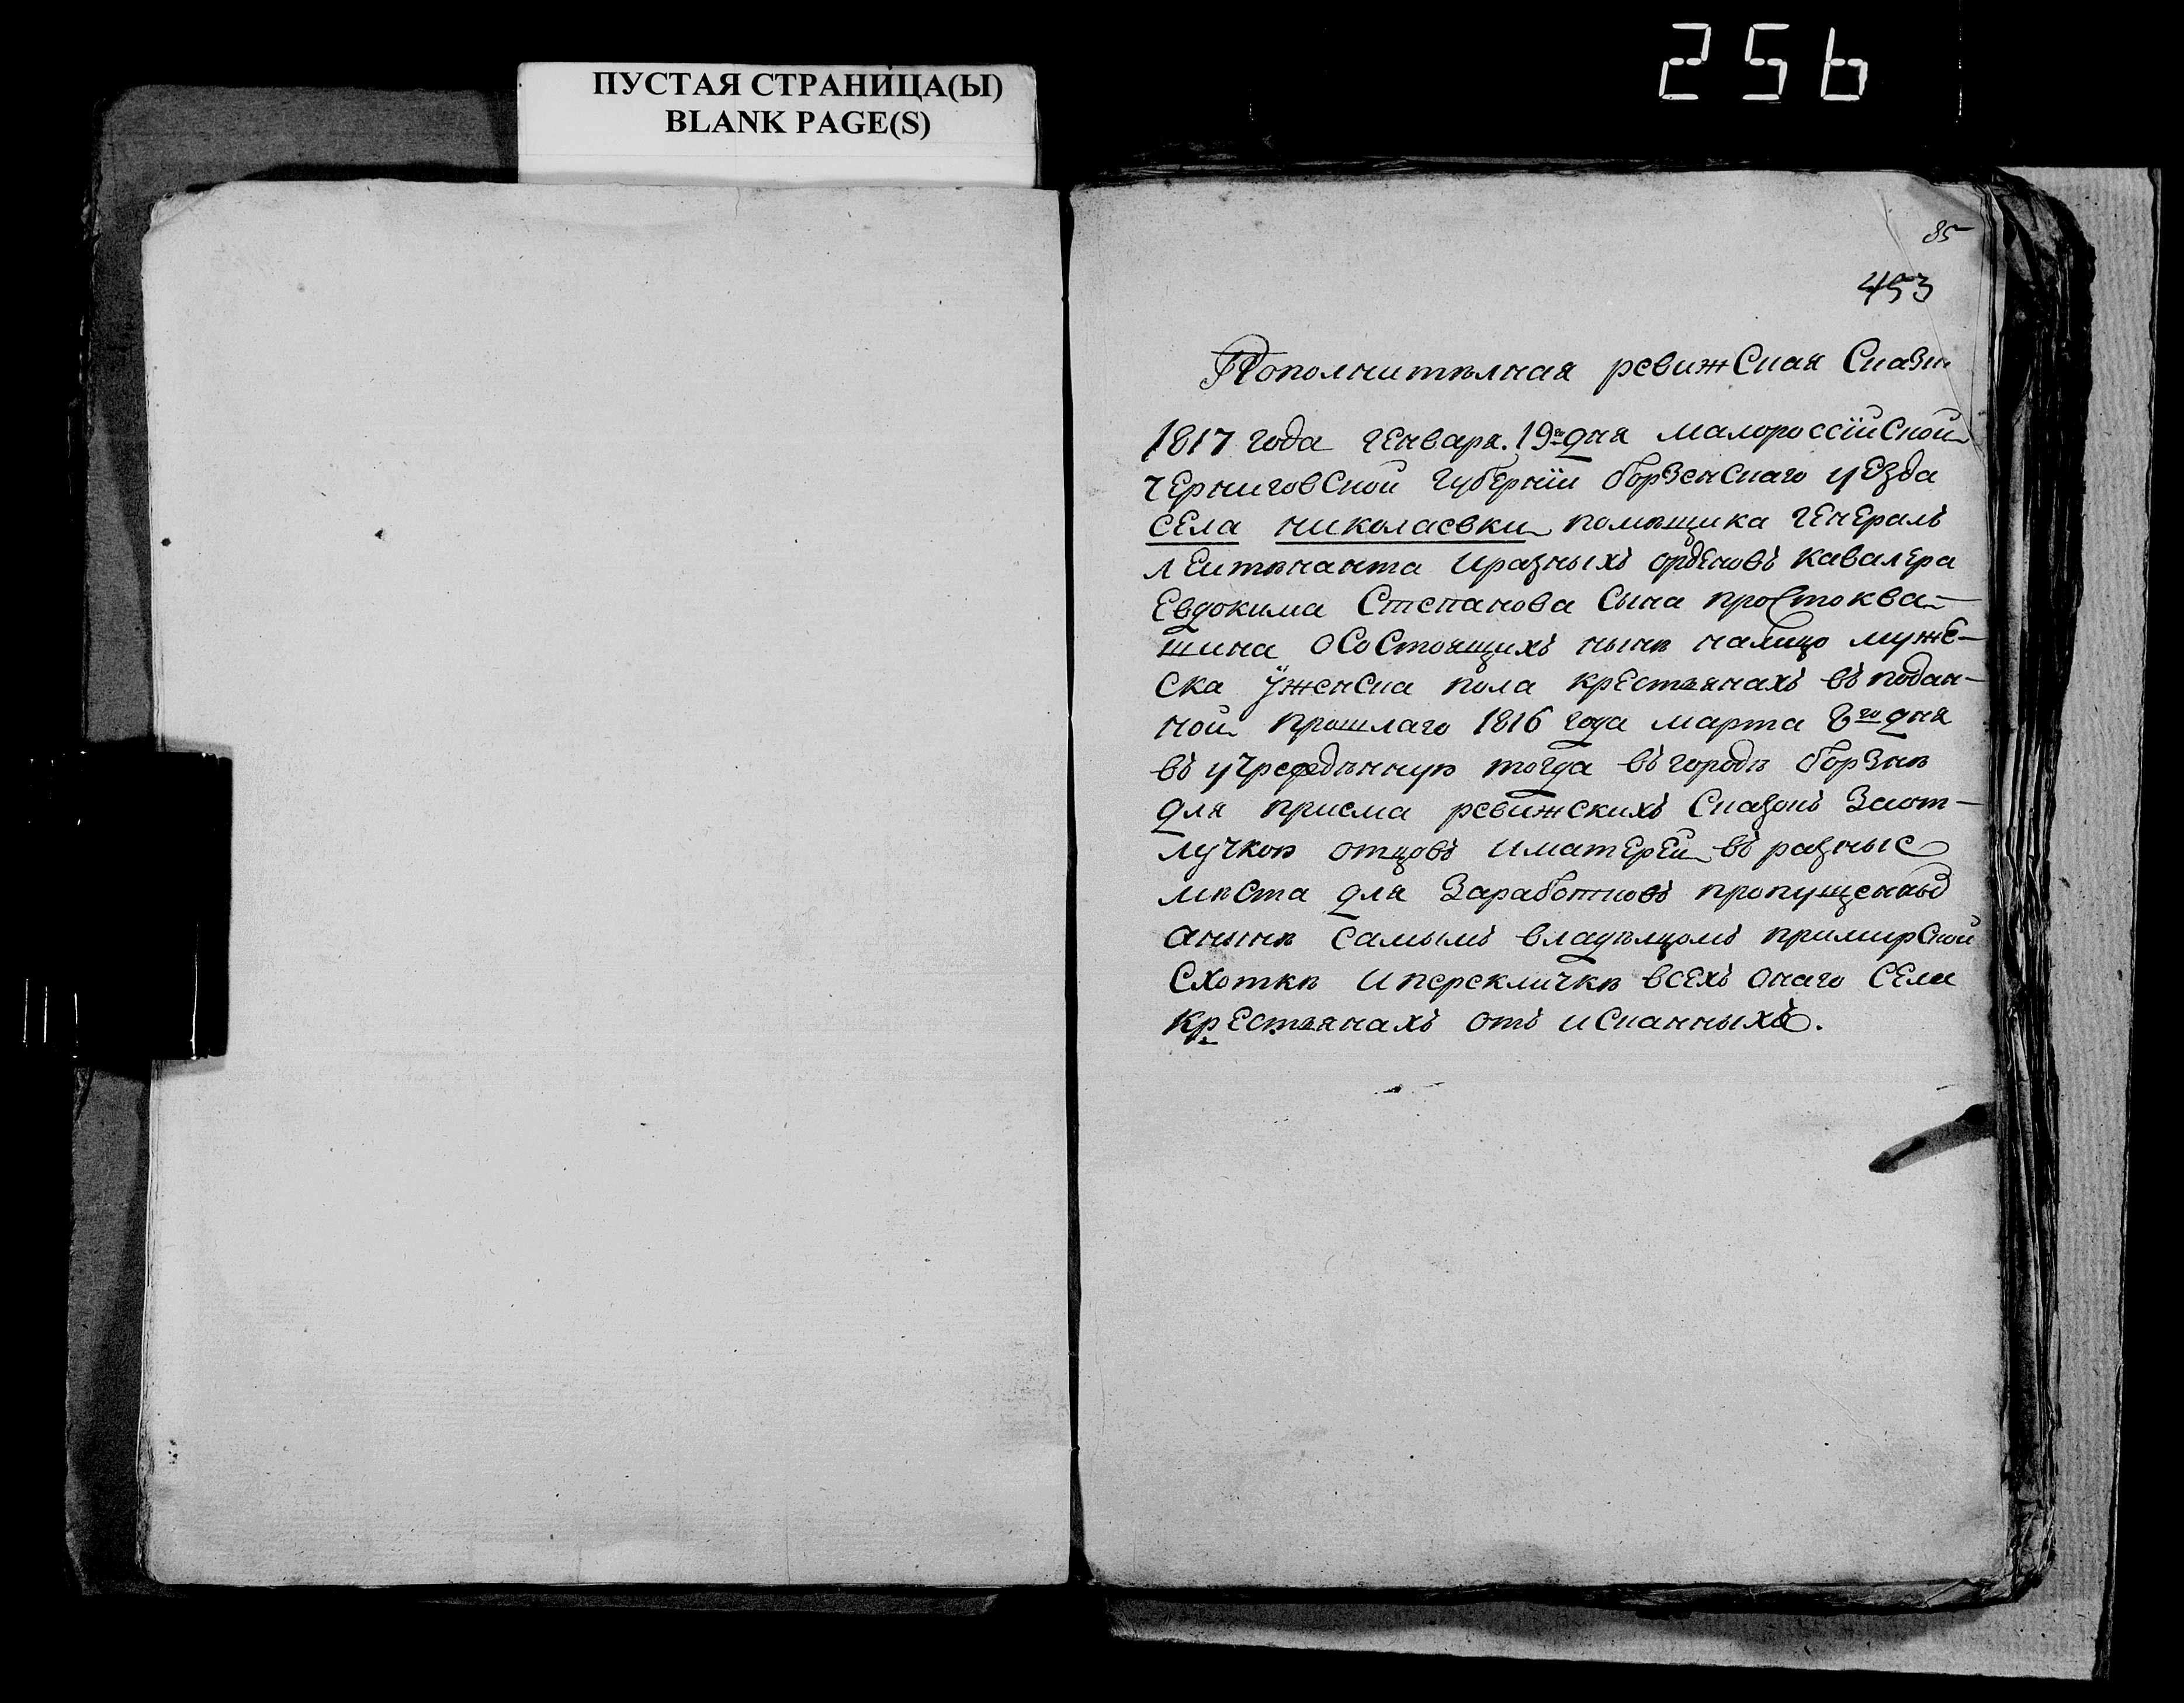 256
ПУСТАЯ СТРАНИЦА(Ы)
BLANK PAGE(S)
85
453
Дополнителная ревижская Сказк
1817 года генваря. 19го дня малороссїйской
черниговской губернїи борзенскаго уезда
села николаевки помѣщика генералъ
леитѣнанта и разныхъ орденовъ кавалера
Евдокима Степанова Сына простоква-
шина о состоящихъ нынѣ налицо муже-
ска ӱ женска пола крестьянахъ въ подан-
ной прошлаго 1816 года марта 8го дня
въ учреждѣнную тогда въ городѣ борзнѣ
для приема ревижскихъ сказокъ За от-
лучкою отцовъ и матерей въ разные
мѣста для Заработковъ пропущенныхъ
а нынѣ самымъ владѣлцомъ при мирской
схоткѣ и перекличкѣ всехъ онаго села
крестьянахъ отъисканныхъ.